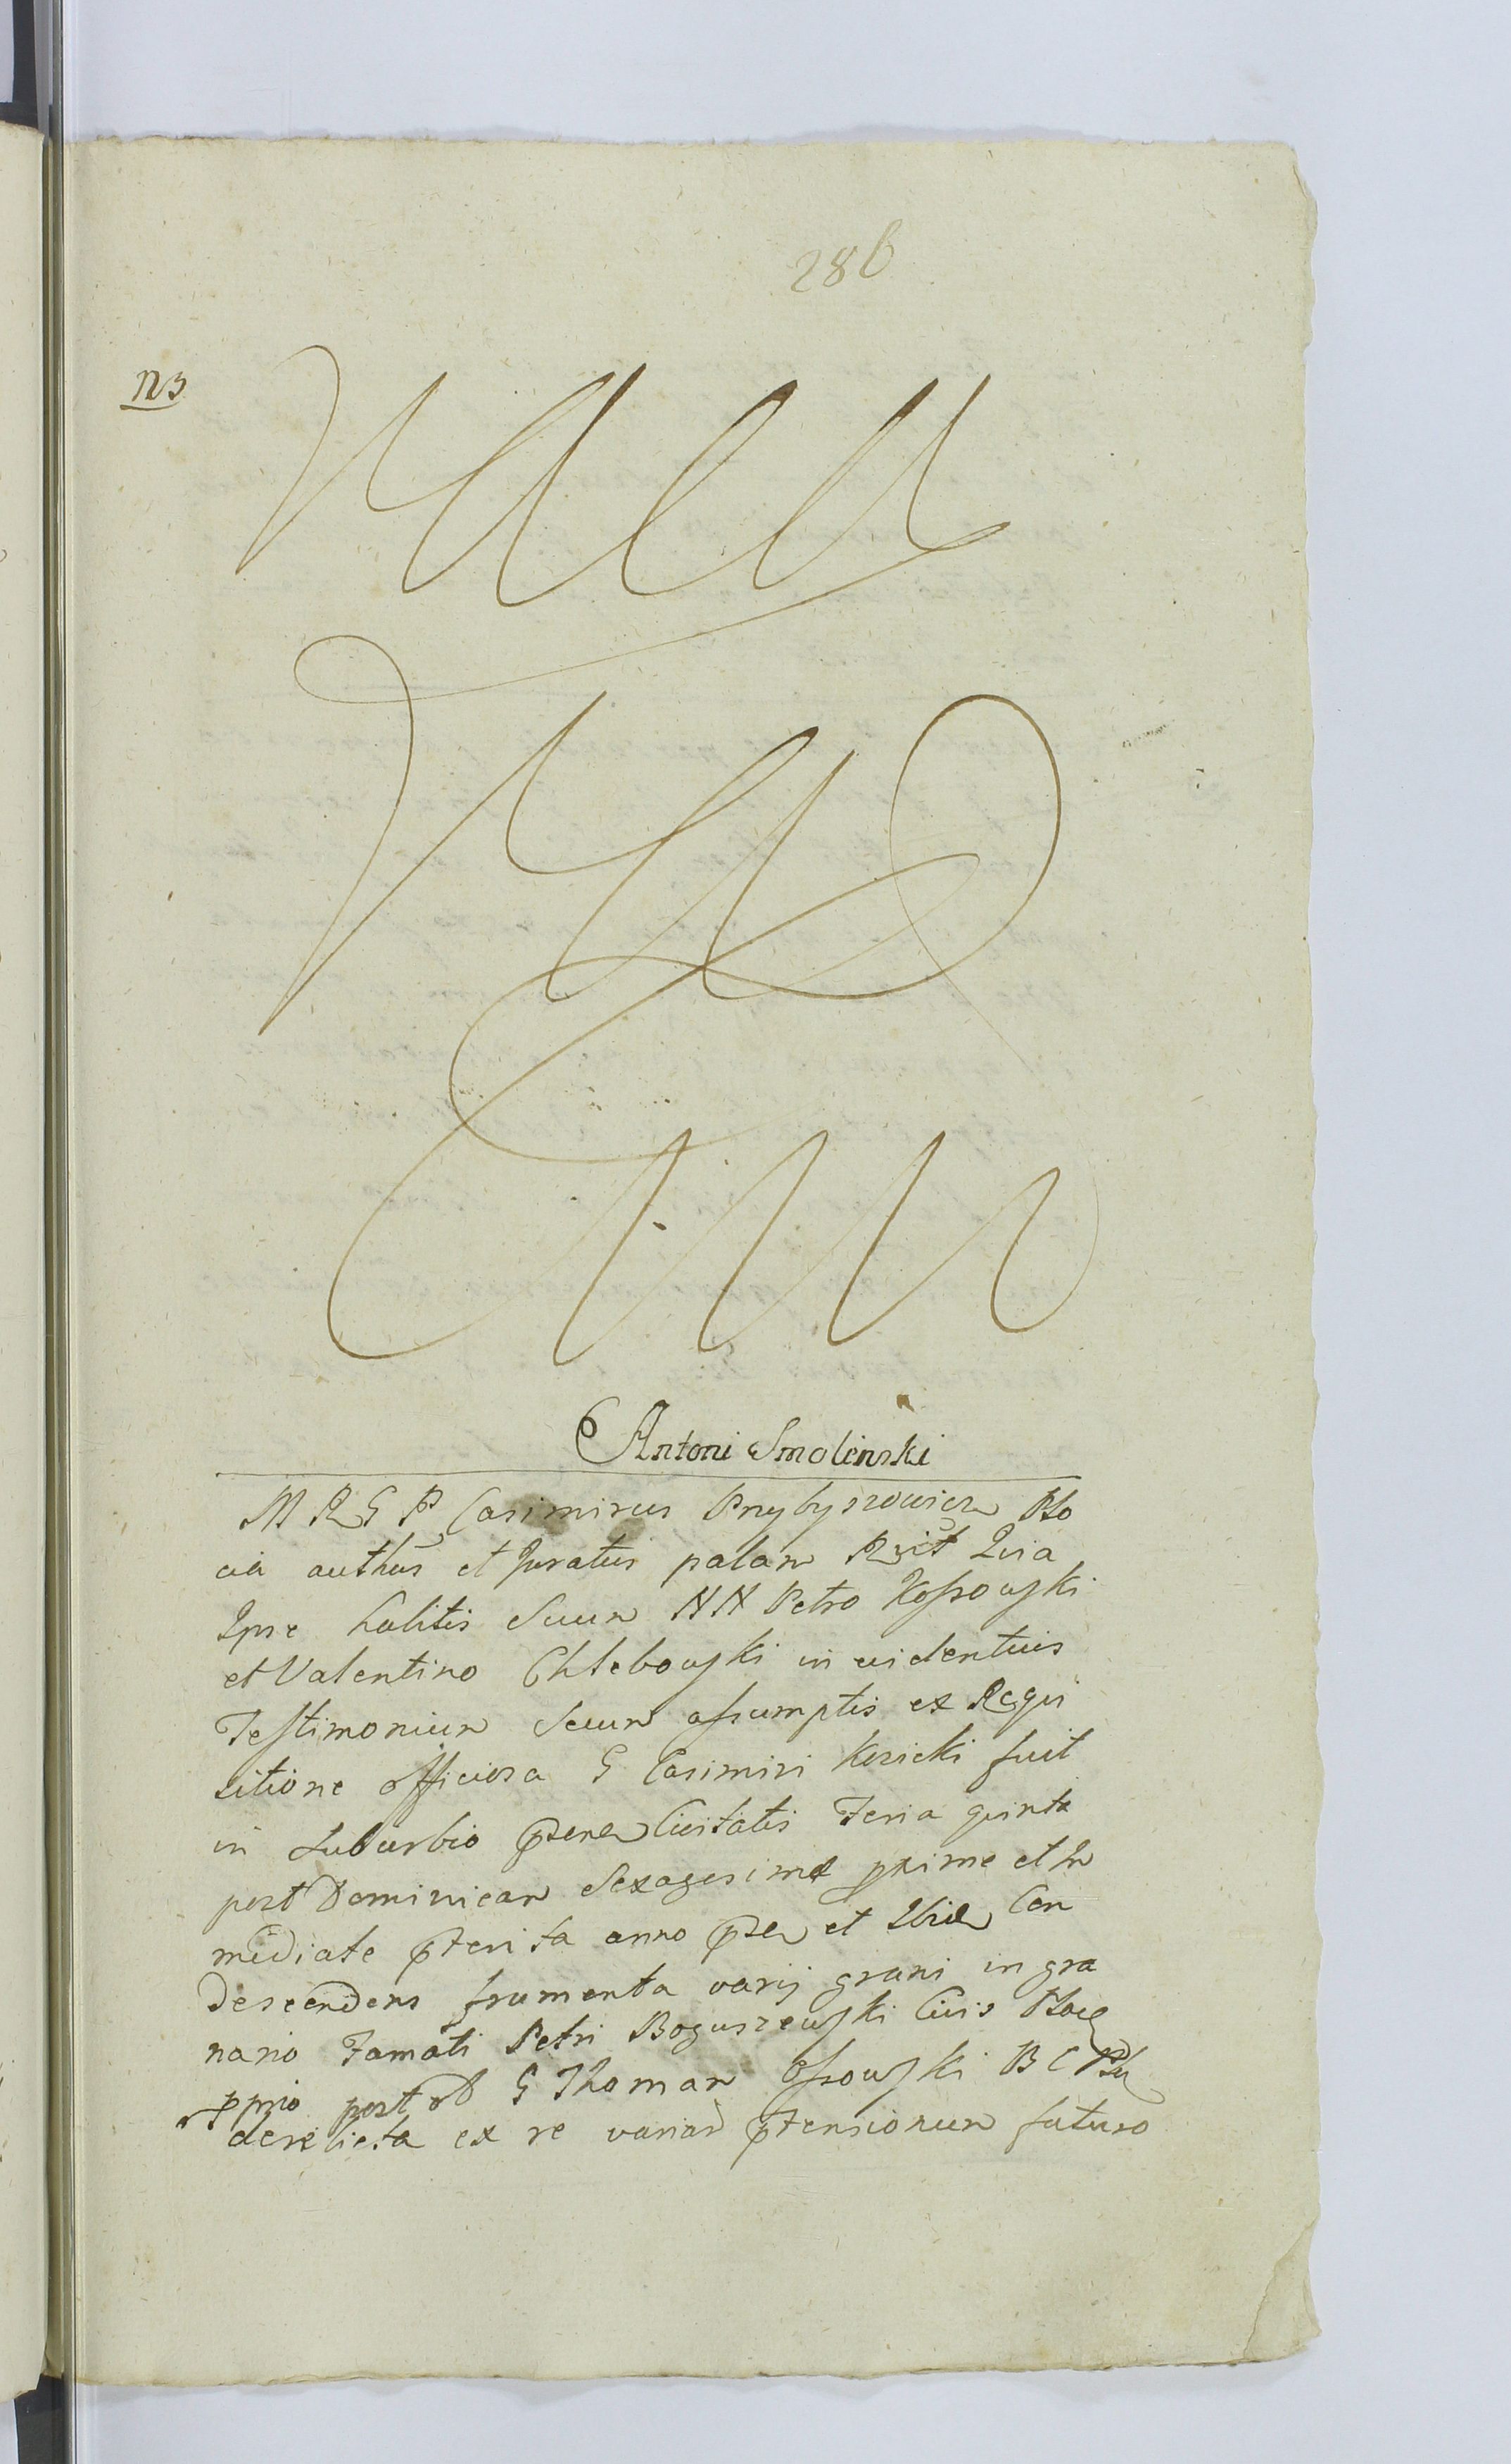 286
Antoni Smolinski
M R G P Casimirus Przybyszowicz Plo
cia auths et Juratus palam Rzit Quia
Ipse habitis Secum NN Petro Kossowski
et Valentino Chlebowski in videntius
Testimonium Secum assumptis ex Requi
sitione officiosa G Casimiri Kozicki fuit
in Suburbio Civitatis Feria quinta
post Dominicam Sexagesime prime et Im
mediate pterita anno et Con
descendens frumenta varij grani in gra
nario Famati Petri Boguszewski Civis
post G Thomam Ossowski B C
derelicta ex re variar ptensionum futuro